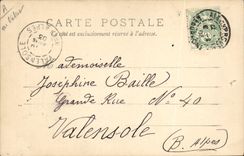 CARTE POSTALE
Ce côté est exclusivement réservé à l'adresse.
VALENSOLE
Mademoiselle
Joséphine Baille
Grande Rue No 40
Valensole
(B. Alpes)